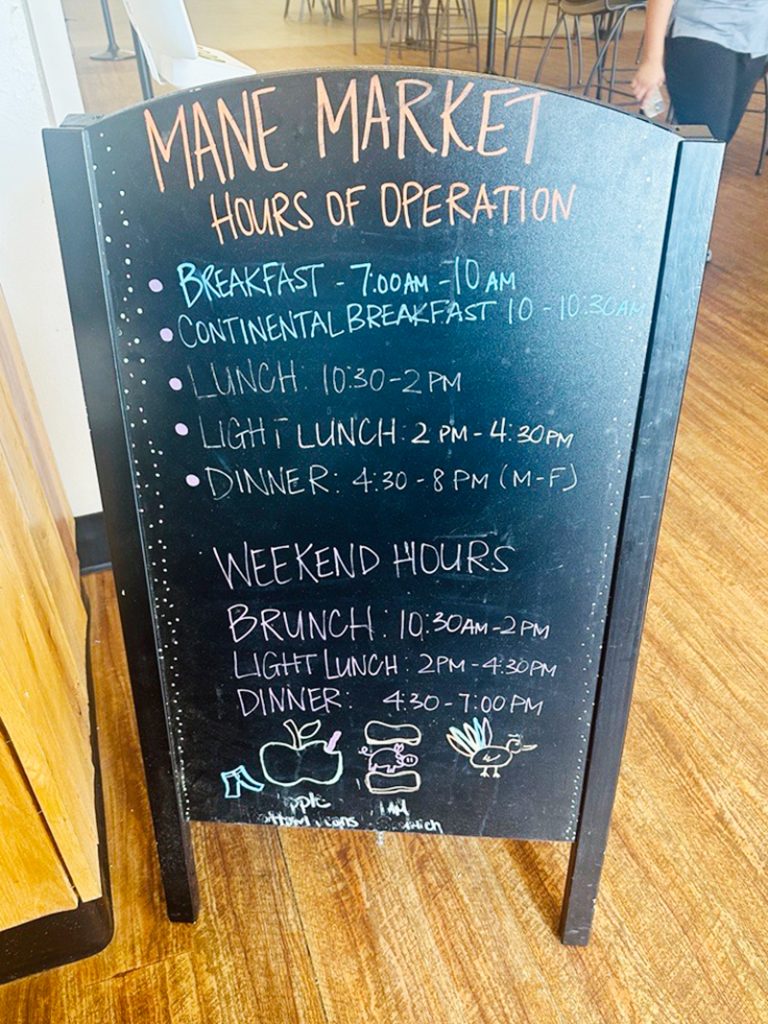 MANE MARKET
HOURS OF OPERATION
BREAKFAST - 7:00AM - 10 AM
CONTINENTAL BREAKFAST 10 - 10:30AM
LUNCH: 10:30-2 PM
LIGHT LUNCH: 2 PM - 4:30PM
DINNER: 4:30 - 8 PM (M-F)
WEEKEND HOURS
BRUNCH: 10:30AM-2PM
LIGHT LUNCH: 2PM - 4:30PM
DINNER: 4:30-7:00PM